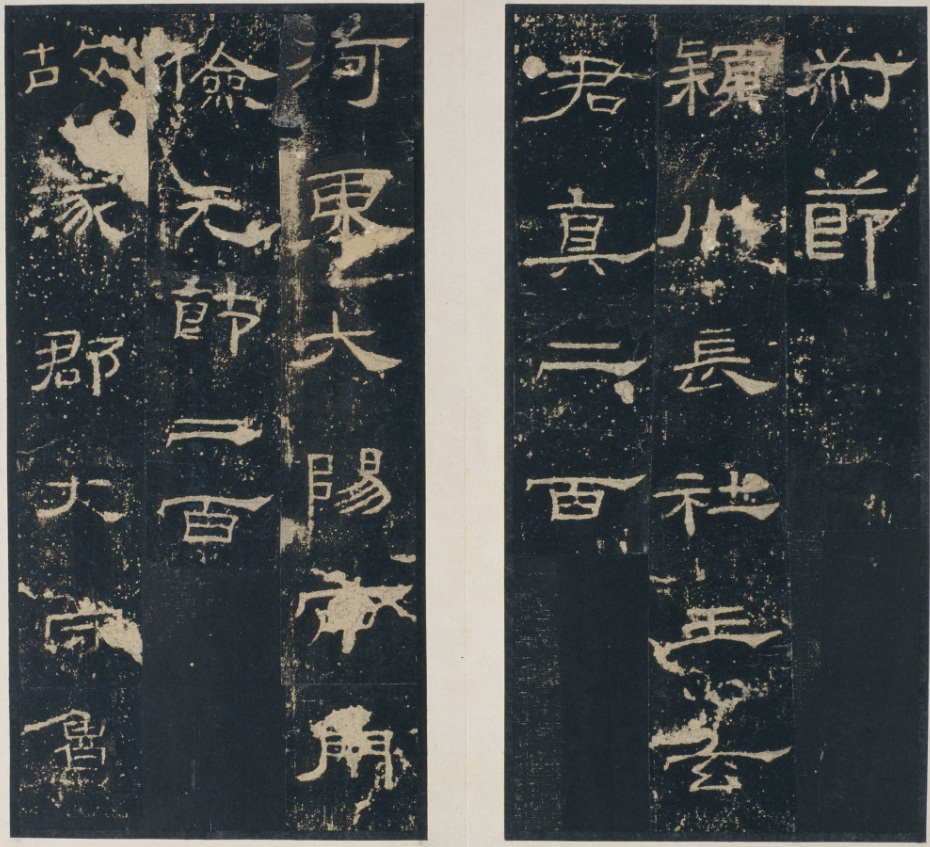 叔節
潁川長社王玄
君真二百
河東大陽西門
儉元節二百
故涿郡大守魯